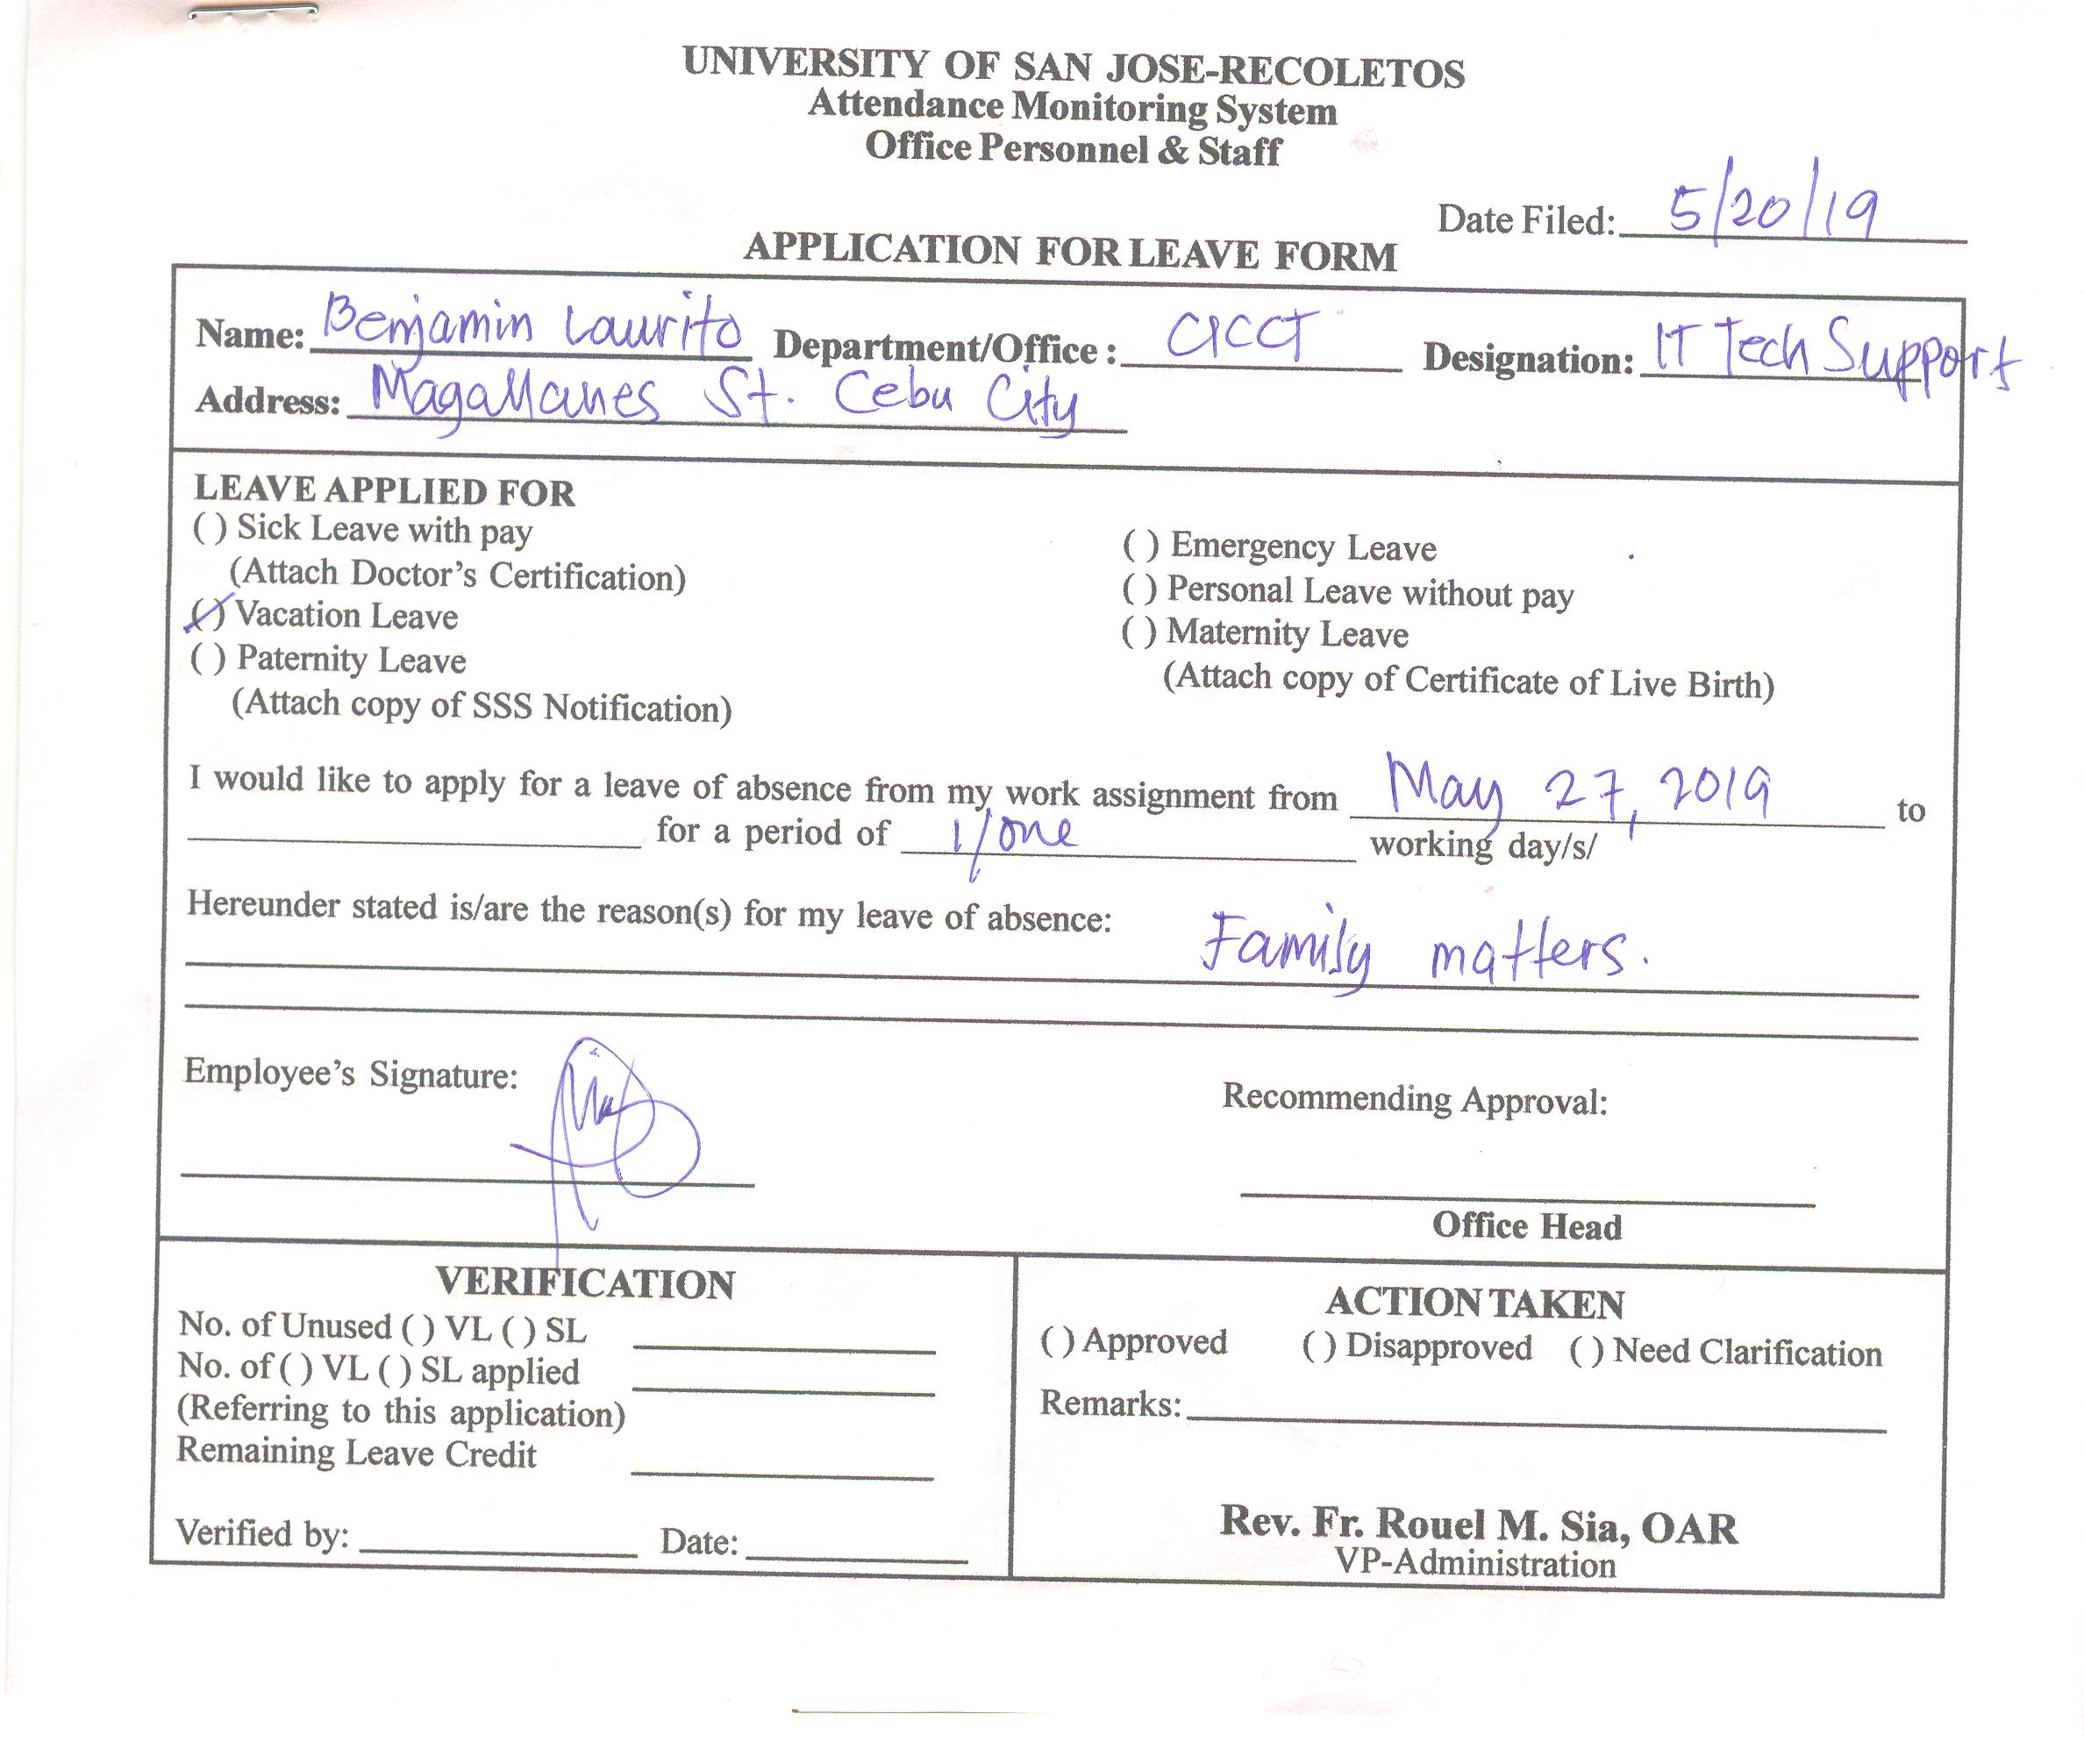 UNIVERSITY OF SAN JOSE-RECOLETOS
Attendance Monitoring System
Office Personnel & Staff
Date Filed: 5/20/19
APPLICATION FOR LEAVE FORM
Name: Benjamin Laurito Department/Office : CICCT Designation: IT Tech Support
Address: Magallanes St. Cebu City
LEAVE APPLIED FOR
( ) Sick Leave with pay
(Attach Doctor's Certification)
(/) Vacation Leave
( ) Paternity Leave
(Attach copy of SSS Notification)
( ) Emergency Leave
( ) Personal Leave without pay
( ) Maternity Leave
(Attach copy of Certificate of Live Birth)
I would like to apply for a leave of absence from my work assignment from May 27, 2019 to
for a period of 1/one working day/s/
Hereunder stated is/are the reason(s) for my leave of absence: Family matters.
Employee's Signature:
Recommending Approval:
Office Head
VERIFICATION
No. of Unused ( ) VL ( ) SL
No. of ( ) VL ( ) SL applied
(Referring to this application)
Remaining Leave Credit
Verified by: Date:
ACTION TAKEN
( ) Approved ( ) Disapproved ( ) Need Clarification
Remarks:
Rev. Fr. Rouel M. Sia, OAR
VP-Administration